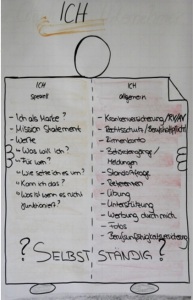 ICH
ICH
speziell
- Ich als Marke?
- Mission Statement
- Werte
↳ Was will ich?
↳ Für wen?
↳ Wie setze ich es um?
↳ Kann ich das?
↳ Was ist wenn es nicht
funktioniert?
ICH
allgemein
- Krankenversicherung/RV/AV
- Rechtsschutz/Berufshaftpflicht
- Firmenkonto
- Behördengänge/
Meldungen
- Standortfrage
- Übung
- Unterstützung
- Werbung durch mich
- Fotos
- Berufsunfähigkeitsversicherung
? SELBSTSTÄNDIG?